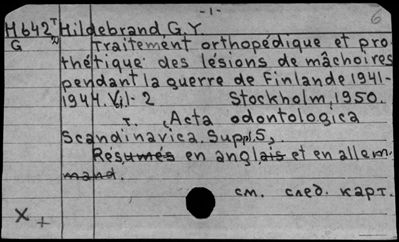 -1-
6
H642 Hildebrand, G.Y.
G Traitement orthopédique et pro-
thétique des lésions de mâchoires
pendant la guerre de Finlande 1941-
1944. Stockholm, 1950.
т. Acta odontologica
Scandinavica. Suppl. 5,
Résumés en anglais et en allem.
mand.
см. след. карт.
X +